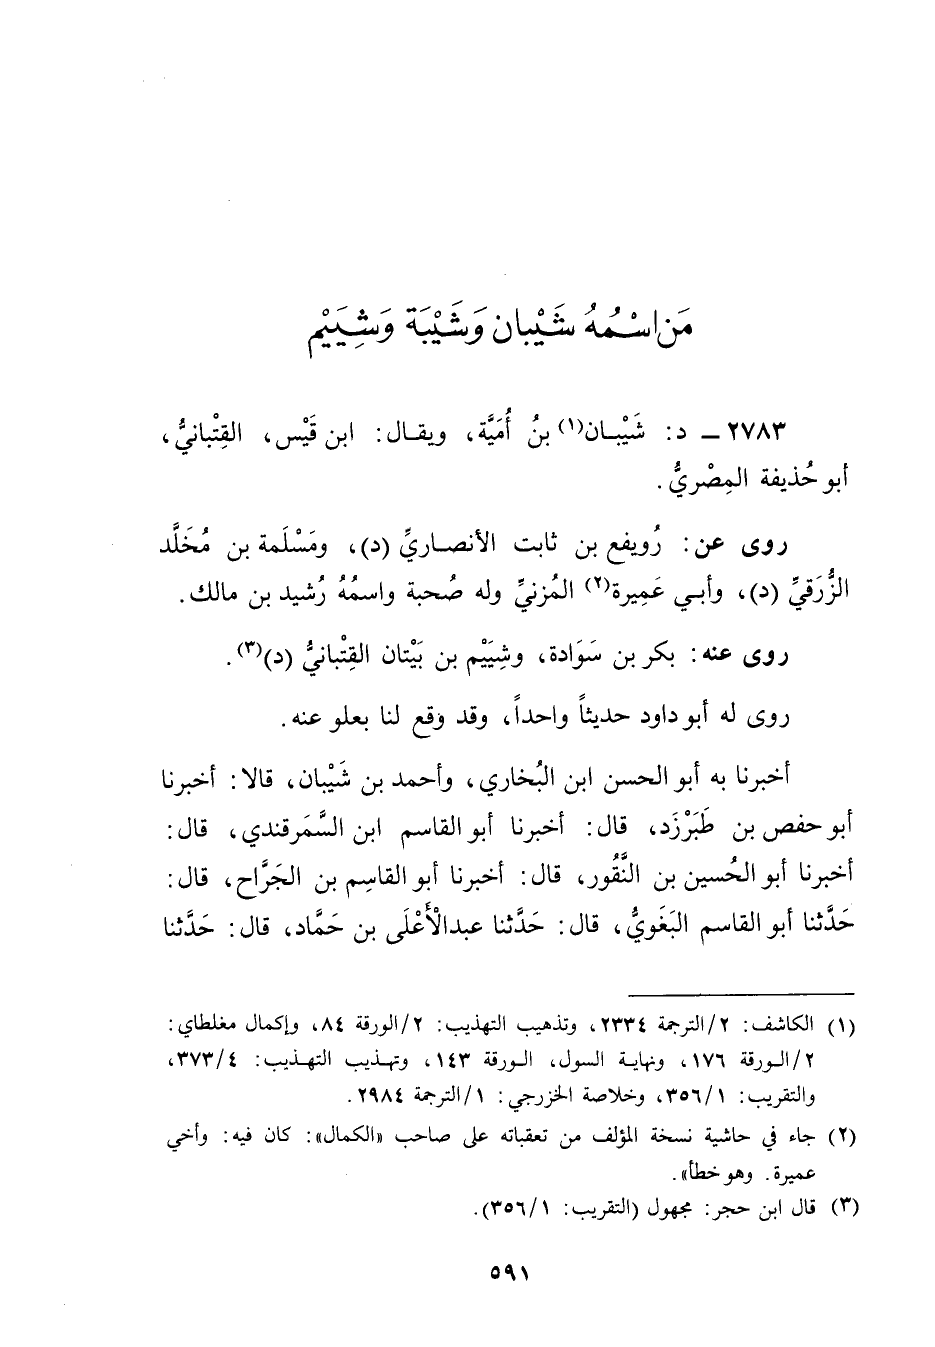 مَن اسْمُهُ شَيْبان وَشَيْبَة وَشِيَيْم
٢٧٨٣ ـ د: شَيْبـان(١) بنُ أُمَيَّة، ويقـال: ابن قَيْس، القِتْبانيُّ،
أبو حُذيفة المِصْريُّ.
روى عن: رُويفع بن ثابت الأنصـاريِّ (د)، ومَسْلَمة بن مُخَلَّد
الزُّرَقيِّ (د)، وأبـي عَمِيرة(٢) المُزنيِّ وله صُحبة واسمُهُ رُشيد بن مالك.
روى عنه: بكر بن سَوَادة، وشِيَيْم بن بَيْتان القِتْبانيُّ (د)(٣).
روى له أبو داود حديثاً واحداً، وقد وقع لنا بعلو عنه.
أخبرنا به أبو الحسن ابن البُخاري، وأحمد بن شَيْبان، قالا: أخبرنا
أبو حفص بن طَبَرْزَد، قال: أخبرنا أبو القاسم ابن السَّمَرقندي، قال:
أخبرنا أبو الحُسين بن النَّقُور، قال: أخبرنا أبو القاسِم بن الجَرَّاح، قال:
حَدَّثنا أبو القاسم البَغَويُّ، قال: حَدَّثنا عبدالْأَعْلَى بن حَمَّاد، قال: حَدَّثنا
(١) الكاشف: ٢/الترجمة ٢٣٣٤، وتذهيب التهذيب: ٢/الورقة ٨٤، وإكمال مغلطاي:
٢/الـورقة ١٧٦، ونهايـة السول، الـورقة ١٤٣، وتهـذيب التهـذيب: ٣٧٣/٤،
والتقريب: ٣٥٦/١، وخلاصة الخزرجي: ١/الترجمة ٢٩٨٤.
(٢) جاء في حاشية نسخة المؤلف من تعقباته على صاحب «الكمال»: كان فيه: وأخي
عميرة. وهو خطأ».
(٣) قال ابن حجر: مجهول (التقريب: ٣٥٦/١).
٥٩١